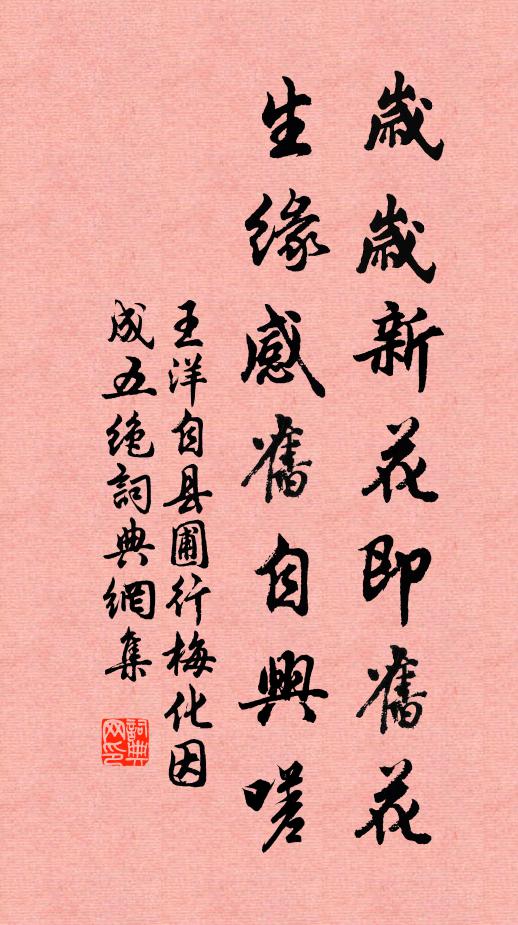 歲歲新花即舊花
生緣感舊自興嗟
王洋自县圃行梅化因
成五绝詞典網集
詞典網印